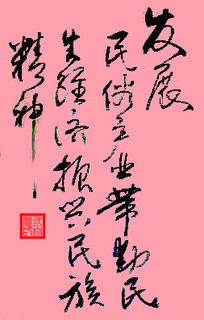 发展
民俗立业带动民
生经济振兴民族
精神